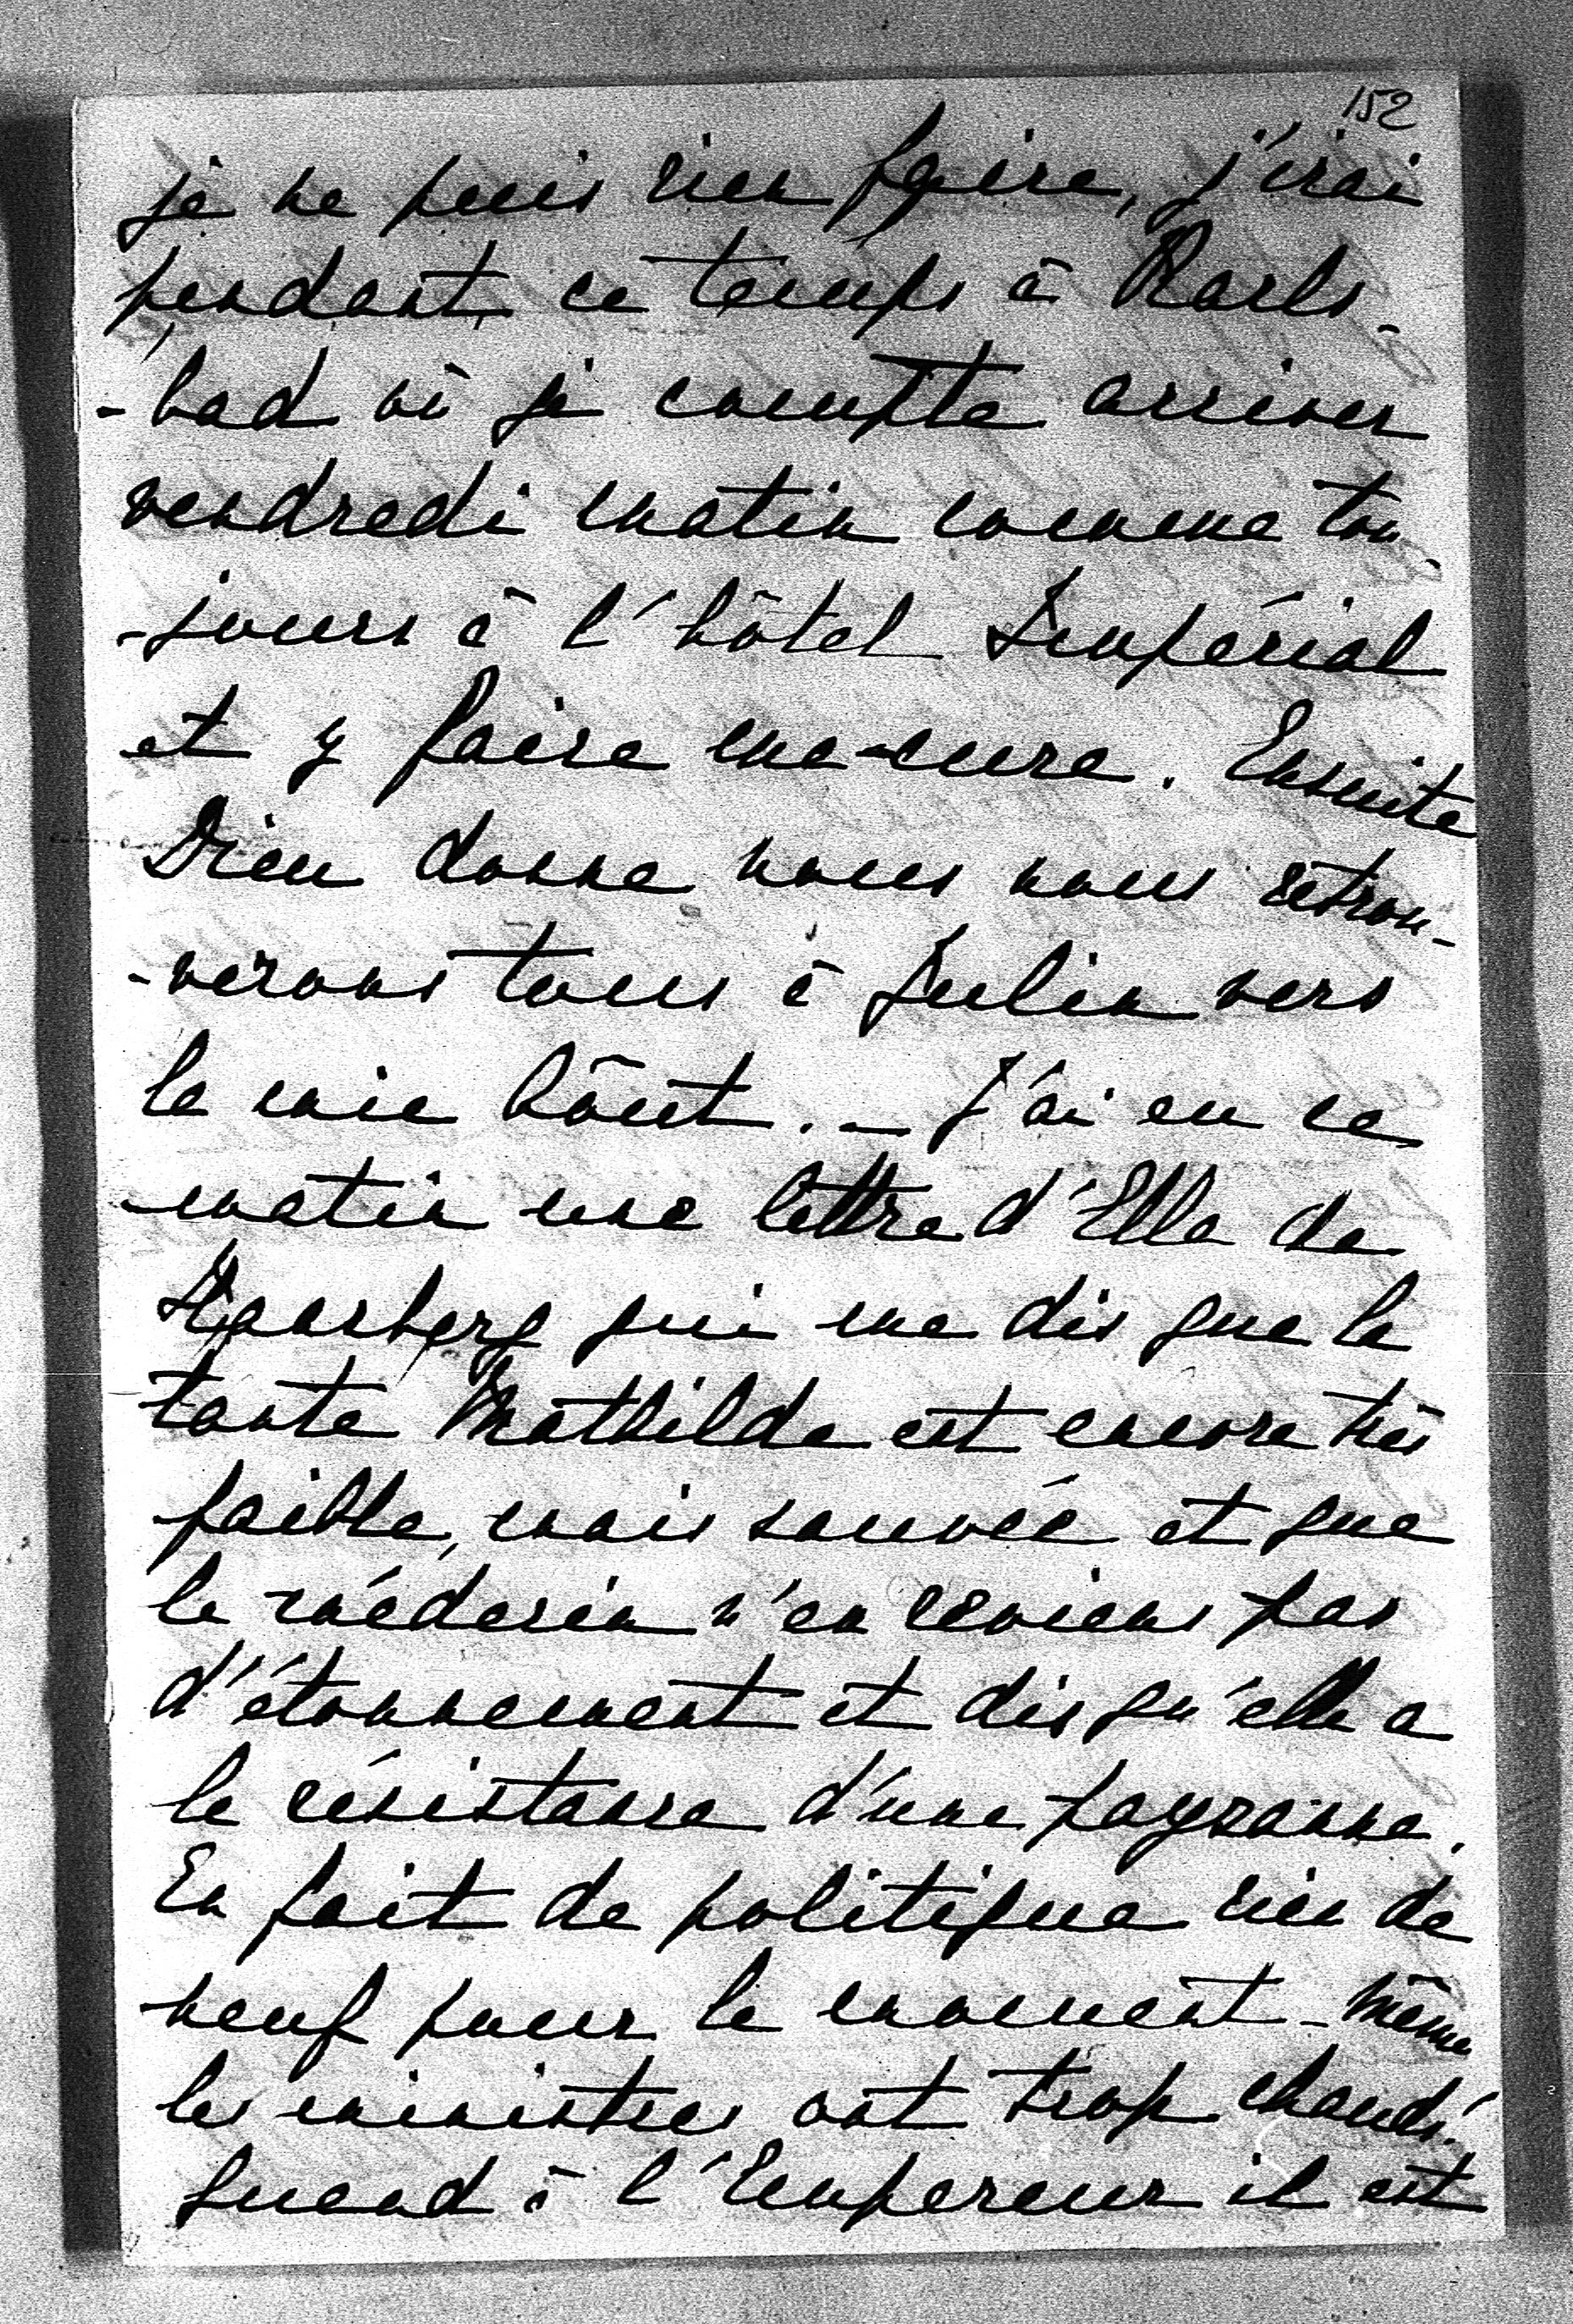 152
je ne puis rien faire, j'irai
pendant ce temps à Karls-
-bad où je compte arriver
vendredi matin comme tou-
-jours à l'hôtel Impérial
et y faire ma cure. Ensuite
Dieu donne nous nous retrou-
-verons tous à Julin vers
le mie hôut. _ J'ai eu ce
matin une lettre d'Ella de
qui me dis que la
tante Mathilde est encore très
faible, mais sauvée et que
le médecin n'en reviens pas
d'étonnement et dis qu'elle a
la résistance d'une paysanne.
En fait de politique rien de
neuf pour le moment - même
les ministres ont trop chauds!
Quand à l'Empereur il est